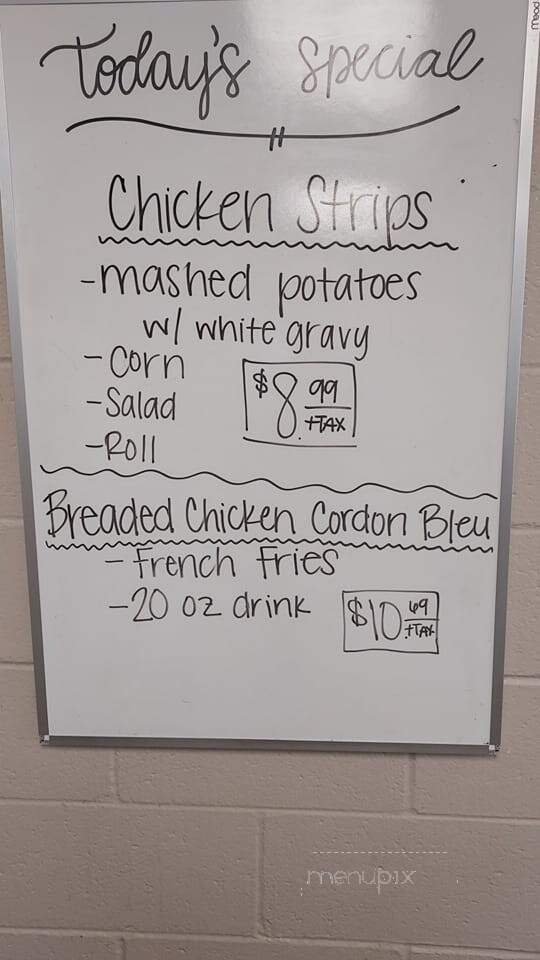 Mead
Today's Special
Chicken Strips
-mashed potatoes
w/ white gravy
-Corn
-Salad
-Roll
$8.99
+TAX
Breaded Chicken Cordon Bleu
-French Fries
-20 oz drink
$10 69
+TAX
menupix